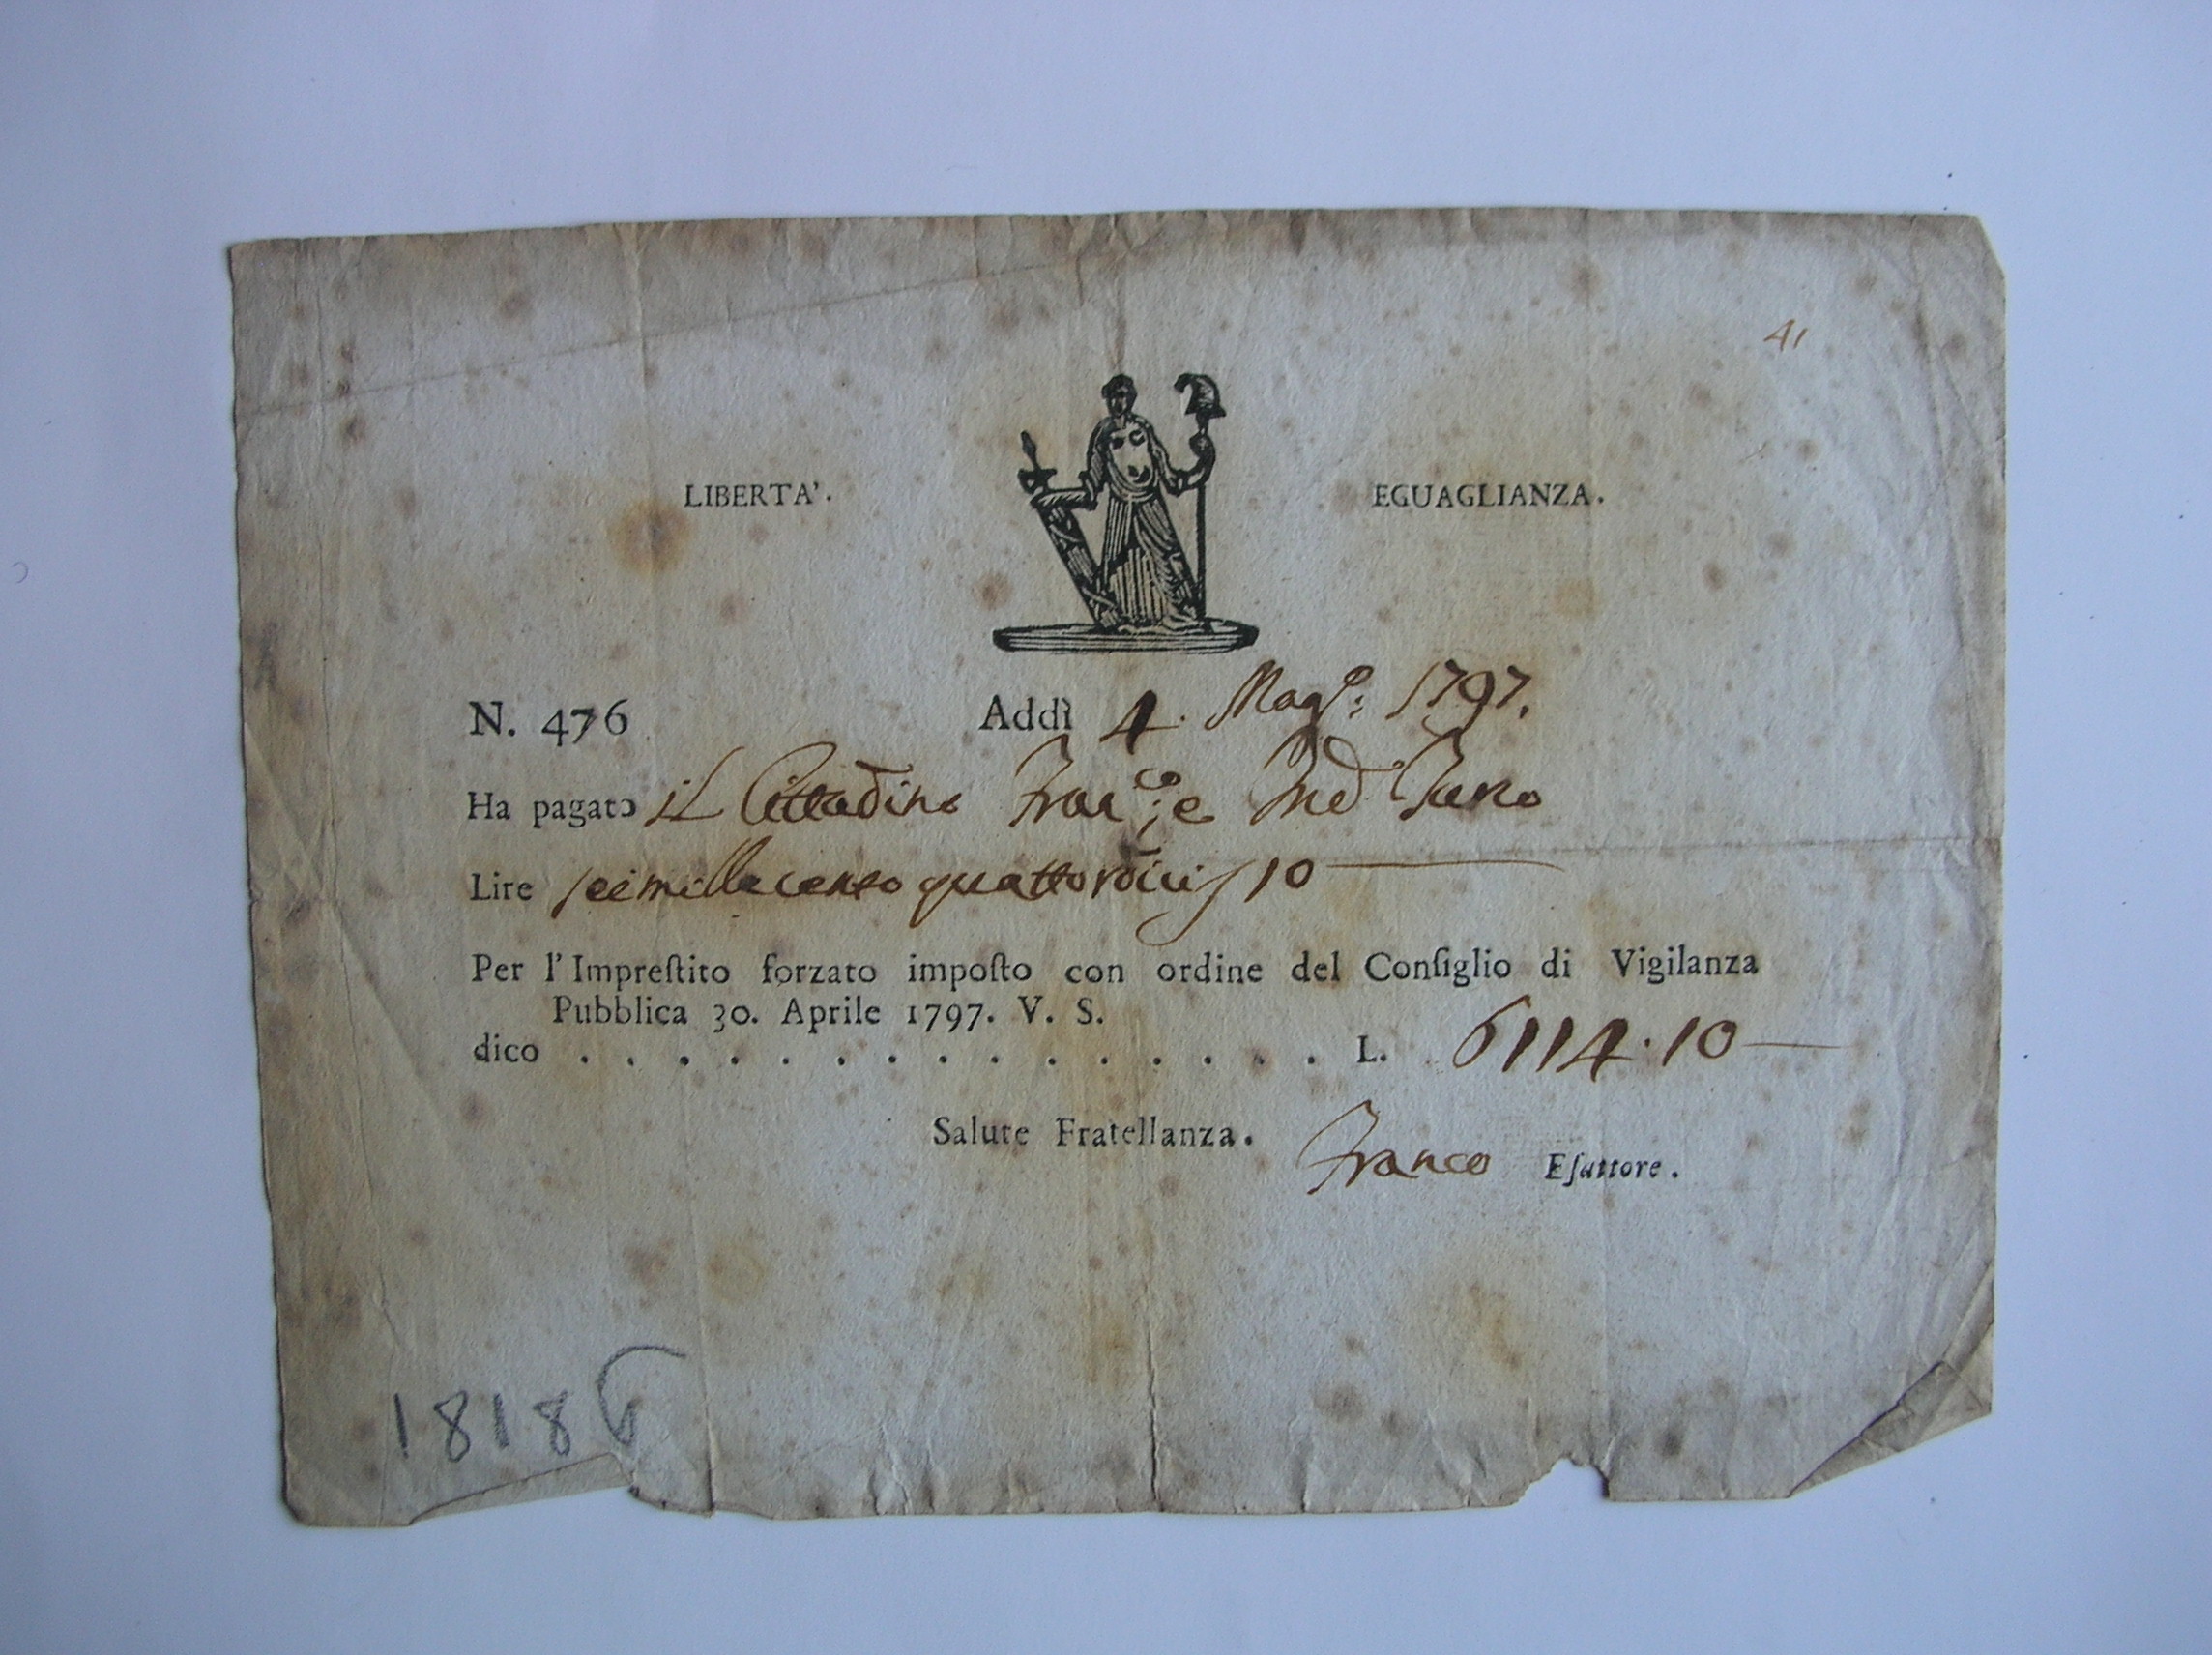 41
LIBERTA'. EGUAGLIANZA.
N. 476 Addì 4. Magº: 1797.
Ha pagato il Cittadino Franco: e
Lire seimillecento quattordici s 10
Per l'Impreſtito forzato impoſto con ordine del Conſiglio di Vigilanza
Pubblica 30. Aprile 1797. V. S.
dico . . . . . . . . . . . . . . . L. 6114.10
Salute Fratellanza.
Franco Eſattore.
18186